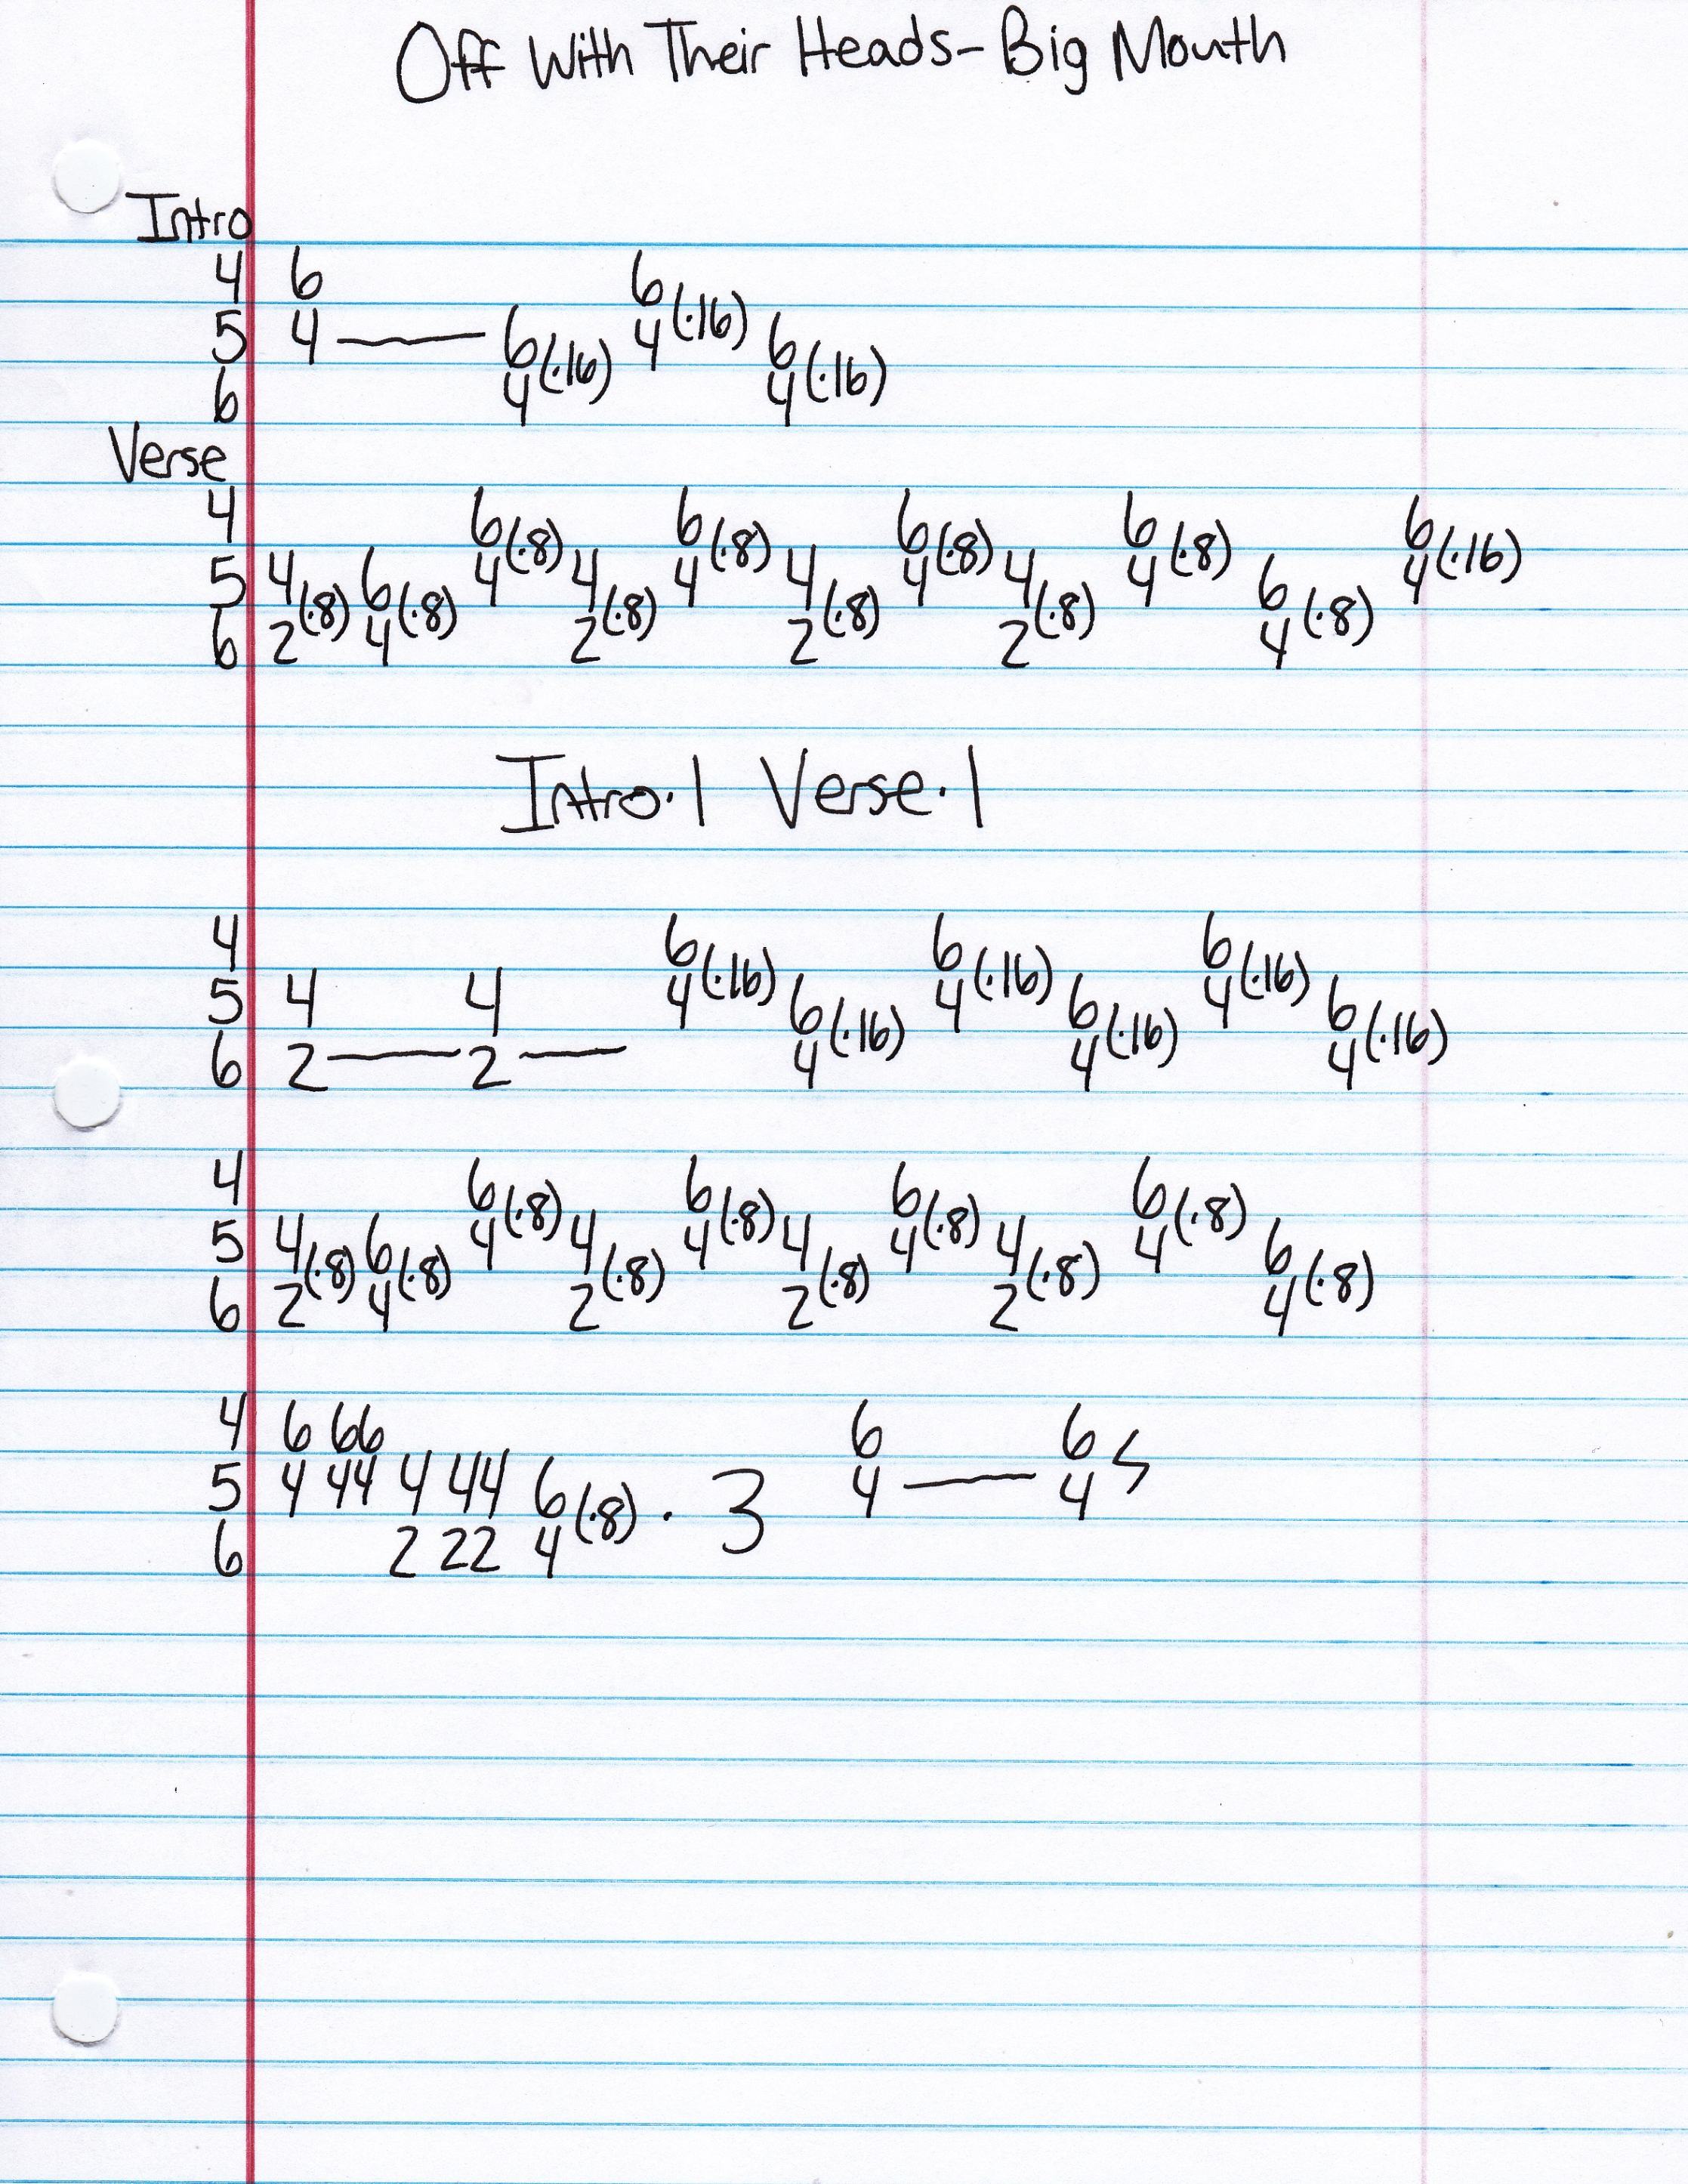 Off With Their Heads - Big Mouth
Intro
4 6 6(·16)
5 4 —— 6(·16) 4 6(·16)
6 4 4
Verse
4 6(·8) 6(·8) 6(·8) 6(·8) 6(·16)
5 4(·8) 6(·8) 4 4(·8) 4 4(·8) 4 4(·8) 4 6(·8) 4
6 2 4 2 2 2 4
Intro·1 Verse·1
4 6(·16) 6(·16) 6(·16)
5 4 4 4 6(·16) 4 6(·16) 4 6(·16)
6 2 —— 2 —— 4 4 4
4 6(·8) 6(·8) 6(·8) 6(·8)
5 4(·8) 6(·8) 4 4(·8) 4 4(·8) 4 4(·8) 4 6(·8)
6 2 4 2 2 2 4
4 6 66 6 6
5 4 44 4 44 6(·8) · 3 4 —— 4
6 2 22 4